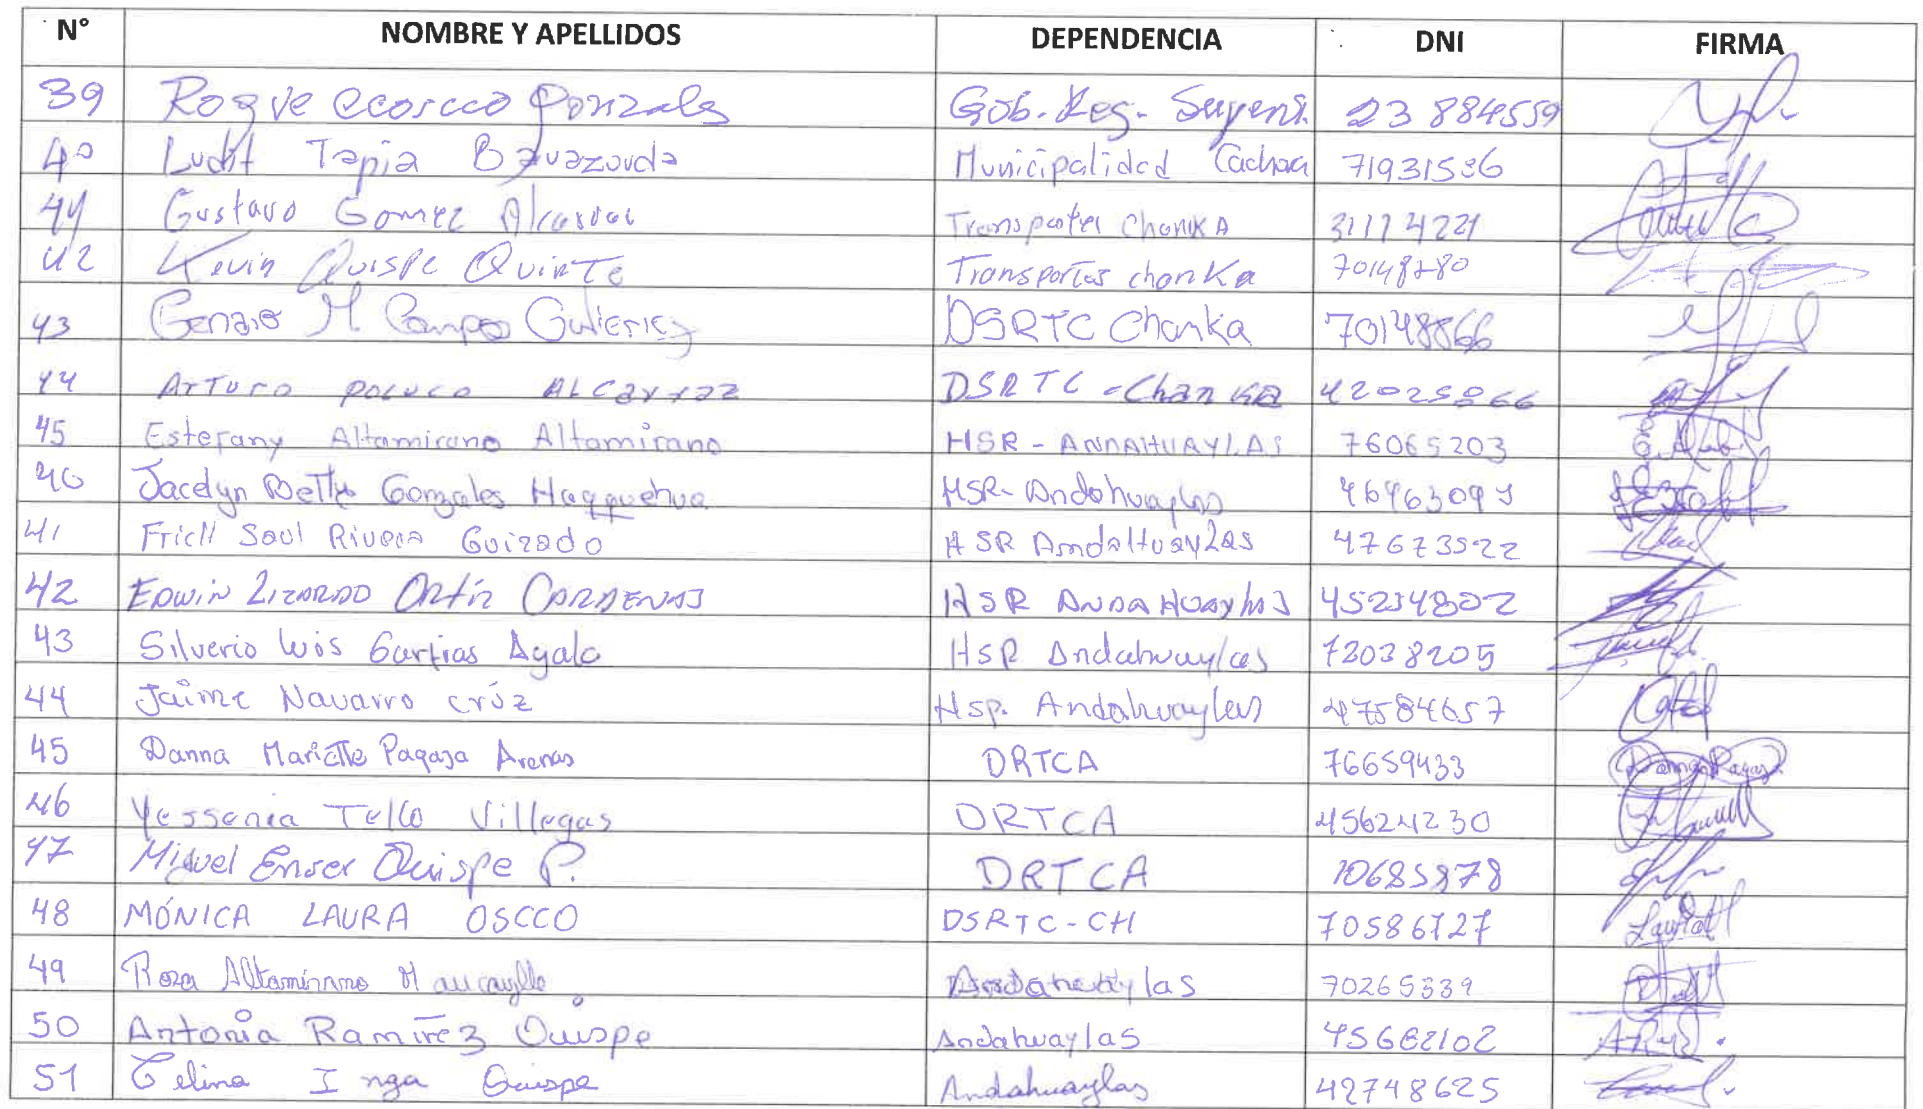 N° NOMBRE Y APELLIDOS DEPENDENCIA DNI FIRMA
39 Roque ccorcco Gonzales Gob. Reg. 23884559
40 Ludit Tapia Municipalidad 71931536
41 Gustavo Gomez Transportes ChanKA 31174221
42 Kevin Quispe Quinte Transportes chanKa 70148780
43 Genaro M Campos Gutierrez DSRTC Chanka 70148866
44 Arturo ALCarraz DSRTC - Chanka 42025866
45 Estefany Altamirano Altamirano HSR - ANDAHUAYLAS 76065203
40 Jacelyn Gonzales HSR - Andahuaylas
41 Saul Rivera Guizado HSR Andahuaylas 47673522
42 Edwin Lizardo Ortiz Cardenas HSR Andahuaylas 45234802
43 Silverio Luis Garfias Ayala HSR Andahuaylas 72038205
44 Jaime Navarro crúz Hsp. Andahuaylas 47584657
45 Danna Arenas DRTCA 76659433
46 Yessenia Tello Villegas DRTCA 45624230
47 Miguel Quispe P. DRTCA 10685878
48 MÓNICA LAURA OSCCO DSRTC-CH 70586727
49 Rosa Altamirano Andahuaylas 70265339
50 Antonia Ramirez Quispe Andahuaylas 45662102
51 Celina Inga Quispe Andahuaylas 42748625